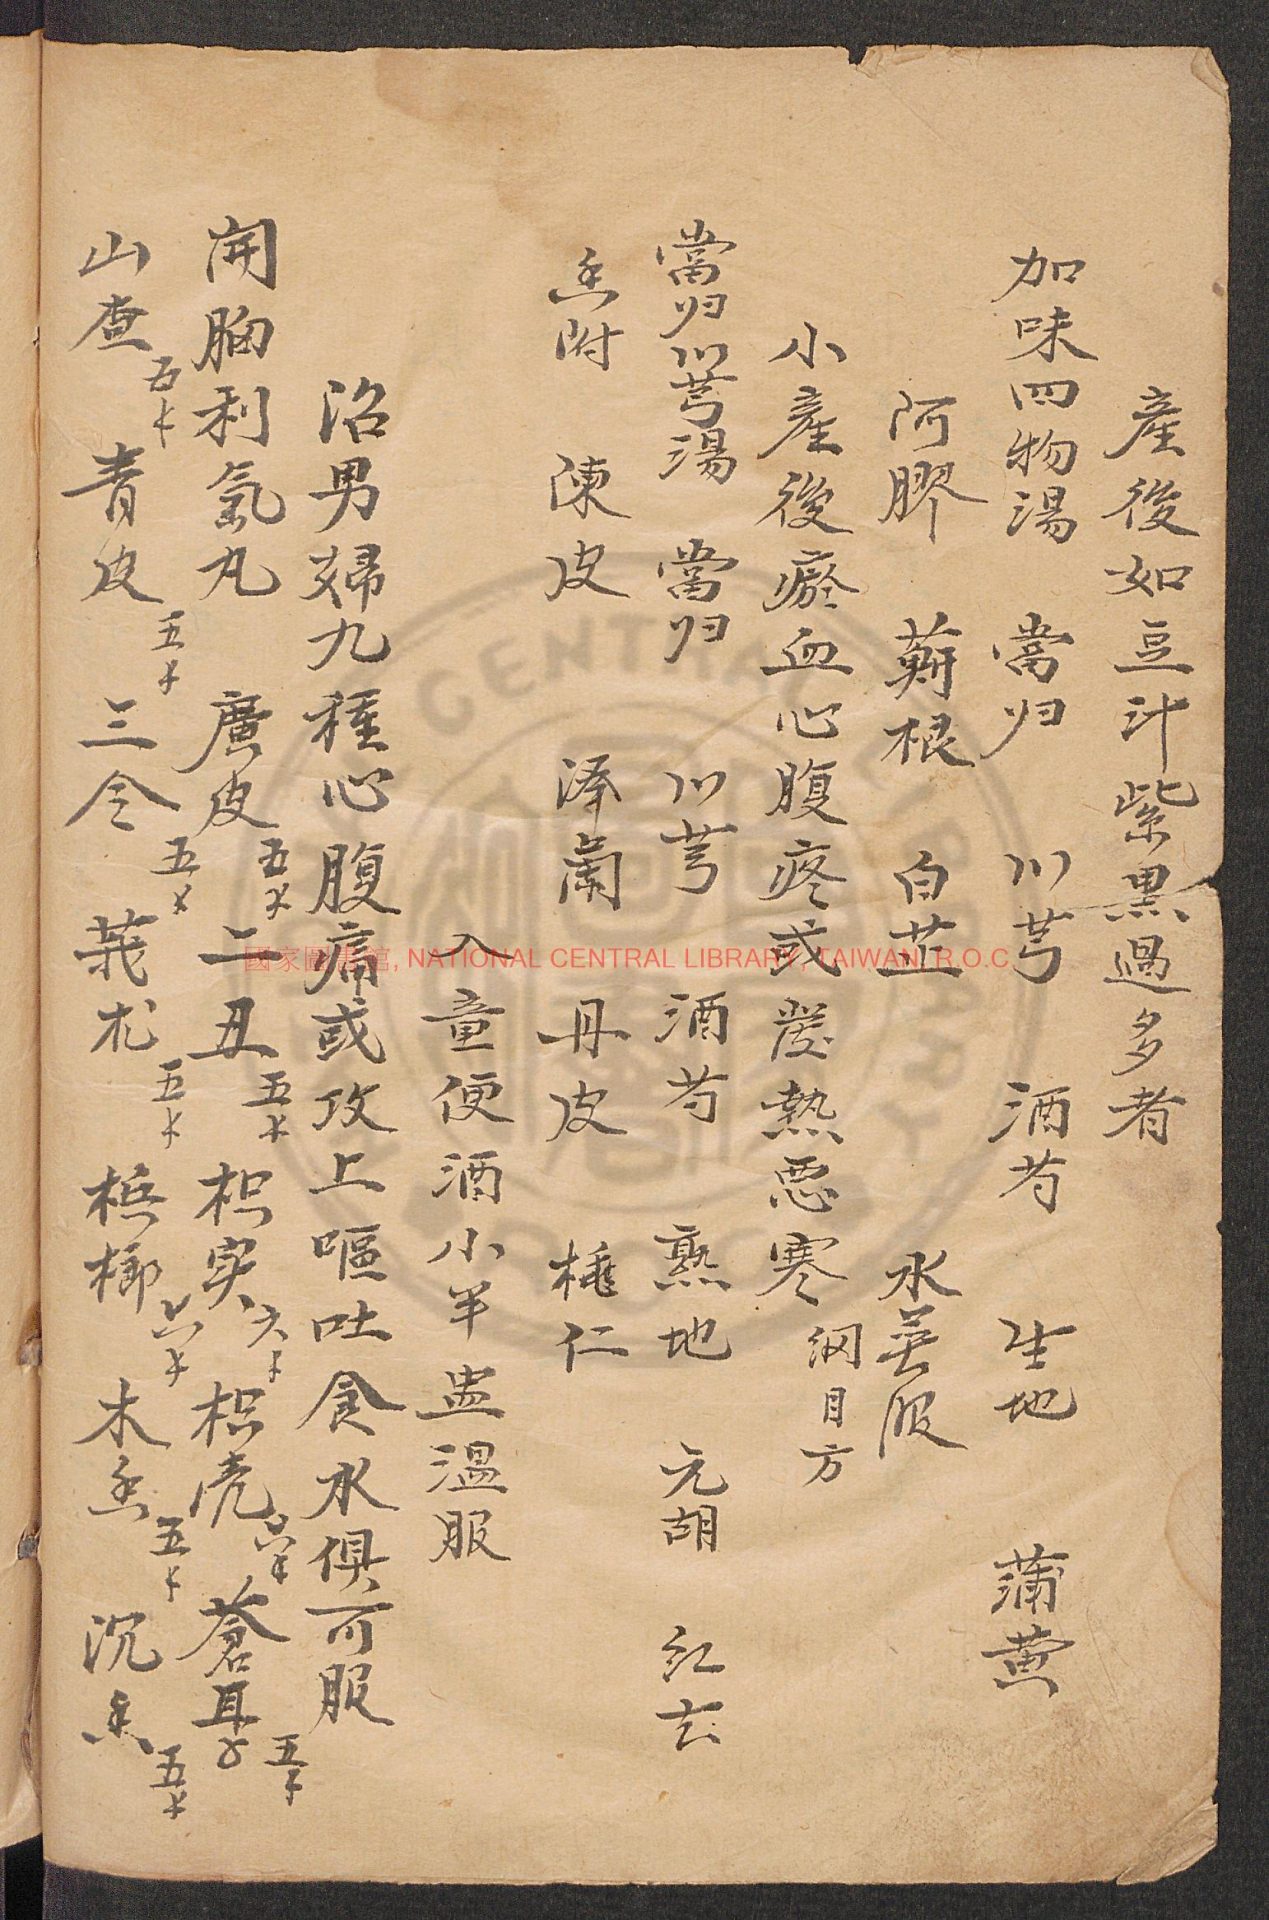 產後如豆汁紫黑過多者
加味四物湯 當归 川芎 酒芍 生地 蒲黃
阿膠 薊根 白芷 水煎服
小產後瘀血心腹疼或發熱惡寒 綱目方
當归川芎湯 當归 川芎 酒芍 熟地 元胡 红去
香附 陳皮 泽蘭 丹皮 桃仁
入童便酒小半盅溫服
治男婦九種心腹痛或攻上嘔吐食水俱可服
開胸利氣丸 廣皮五十 二丑五十 枳实六十 枳壳六十 蒼耳子五十
山查五十 青皮五十 三今五十 莪朮五十 梹榔六十 木香五十 沉香五十
國家圖書館, NATIONAL CENTRAL LIBRARY, TAIWAN, R.O.C.